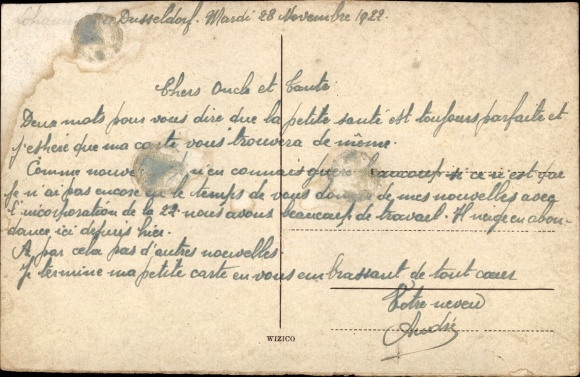 Dusseldorf. Mardi 28 Novembre 1922.
Chers Oncle et Tante.
Deux mots pour vous dire que la petite santé est toujours parfaite et
j'espère que ma carte vous trouvera de même.
Comme nouvelles n'en connais guère beaucoup si ce n'est que
je n'ai pas encore eu le temps de vous donner de mes nouvelles avec
l'incorporation de la 22 nous avons beaucoup de travail. Il neige en abon-
dance ici depuis hier.
A par cela pas d'autres nouvelles.
Je termine ma petite carte en vous embrassant de tout cœur
Votre neveu
André
WIZICO